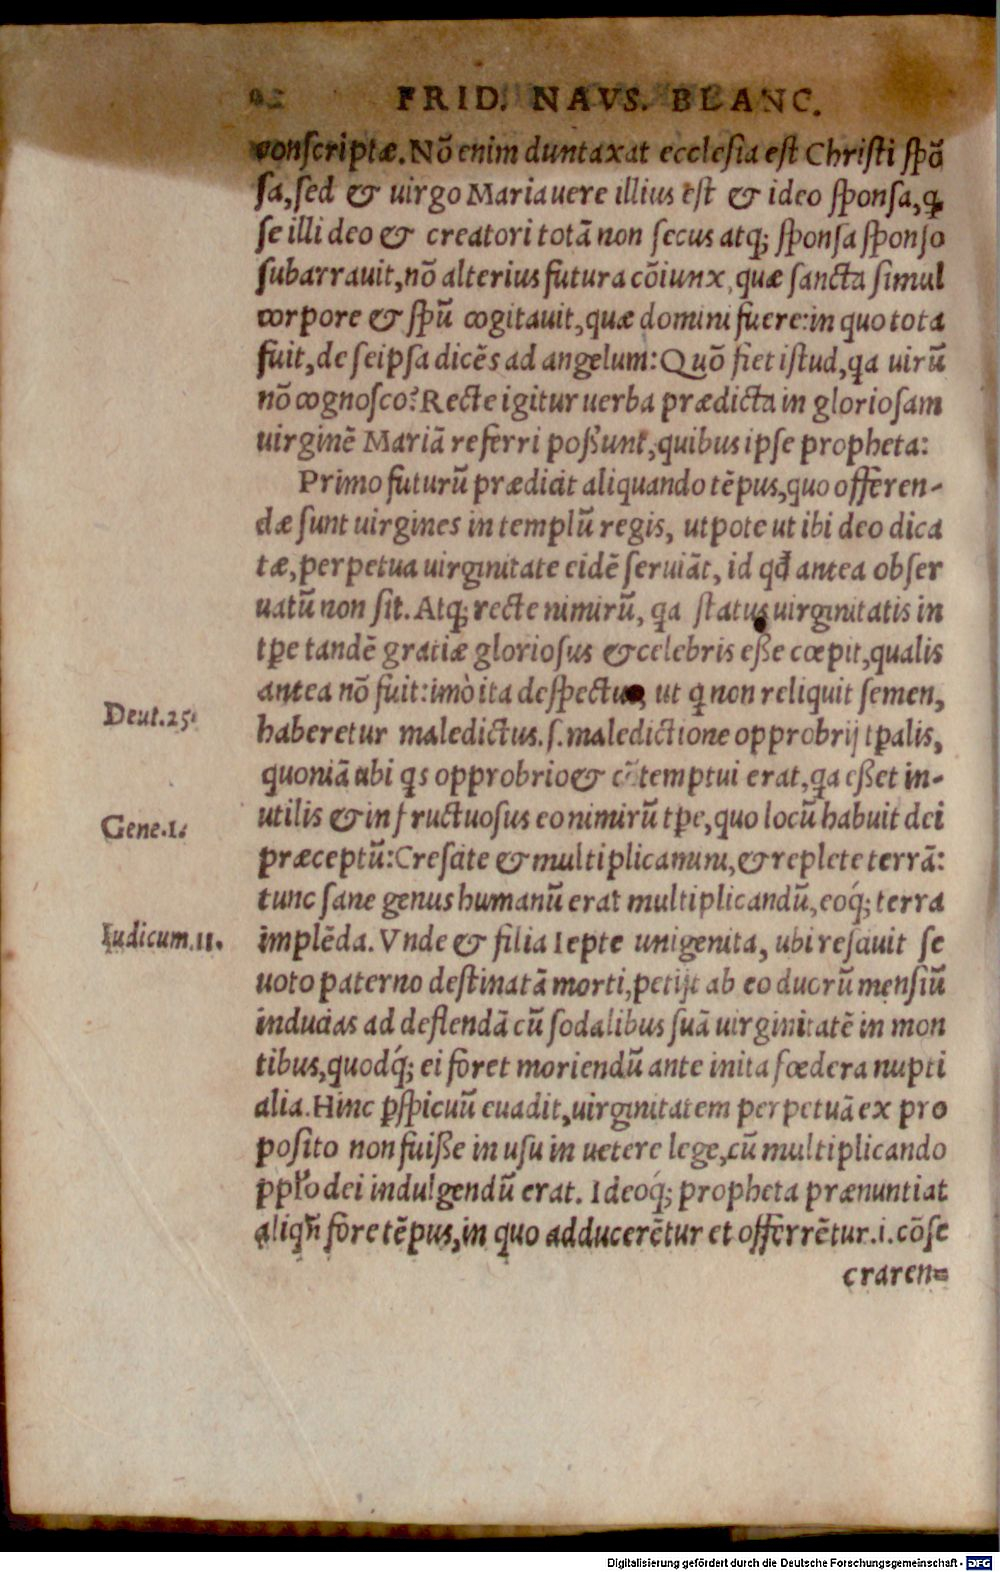 92 FRID. NAVS. BLANC.
conſcriptæ. Nō enim duntaxat eccleſia eſt Chriſti ſpō
ſa, ſed & uirgo Maria uere illius eſt & ideo ſponſa, q̨
ſe illi deo & creatori totā non ſecus atq; ſponſa ſponſo
ſubarrauit, nō alterius futura cōiunx, quæ ſancta ſimul
corpore & ſpū cogitauit, quæ domini fuere: in quo tota
fuit, de ſeipſa dicēs ad angelum: Quō fiet iſtud, qa uirū
nō cognoſco? Recte igitur uerba prædicta in glorioſam
uirginē Mariā referri poßunt, quibus ipſe propheta:
Primo futurū prædicit aliquando tēpus, quo offeren-
dæ ſunt uirgines in templū regis, utpote ut ibi deo dica
tæ, perpetua uirginitate eidē ſeruiāt, id qđ antea obſer
uatū non ſit. Atq; recte nimirū, qa ſtatus uirginitatis in
tp̄e tandē gratiæ glorioſus & celebris eße cœpit, qualis
antea nō fuit: imò ita deſpectus, ut q non reliquit ſemen,
Deut. 25.
haberetur maledictus. ſ. maledictione opprobrij tp̄alis,
quoniā ubi qs opprobrio & cōtemptui erat, qa eßet in-
utilis & infructuoſus eo nimirū tp̄e, quo locū habuit dei
Gene. 1.
præceptū: Creſcite & multiplicamini, & replete terrā:
tunc ſane genus humanū erat multiplicandū, eoq́; terra
Iudicum. 11.
implēda. Vnde & filia Iepte unigenita, ubi reſciuit ſe
uoto paterno deſtinatā morti, petijt ab eo duorū menſiū
inducias ad deflendā cū ſodalibus ſuā uirginitatē in mon
tibus, quodq́; ei foret moriendū ante inita fœdera nupti
alia. Hinc p̱ſpicuū euadit, uirginitatem perpetuā ex pro
poſito non fuiße in uſu in uetere lege, cū multiplicando
ppl̄o dei indulgendū erat. Ideoq́; propheta prænuntiat
aliqñ fore tēpus, in quo adducerētur et offerrētur. i. cōſe
craren=
Digitalisierung gefördert durch die Deutsche Forschungsgemeinschaft - DFG